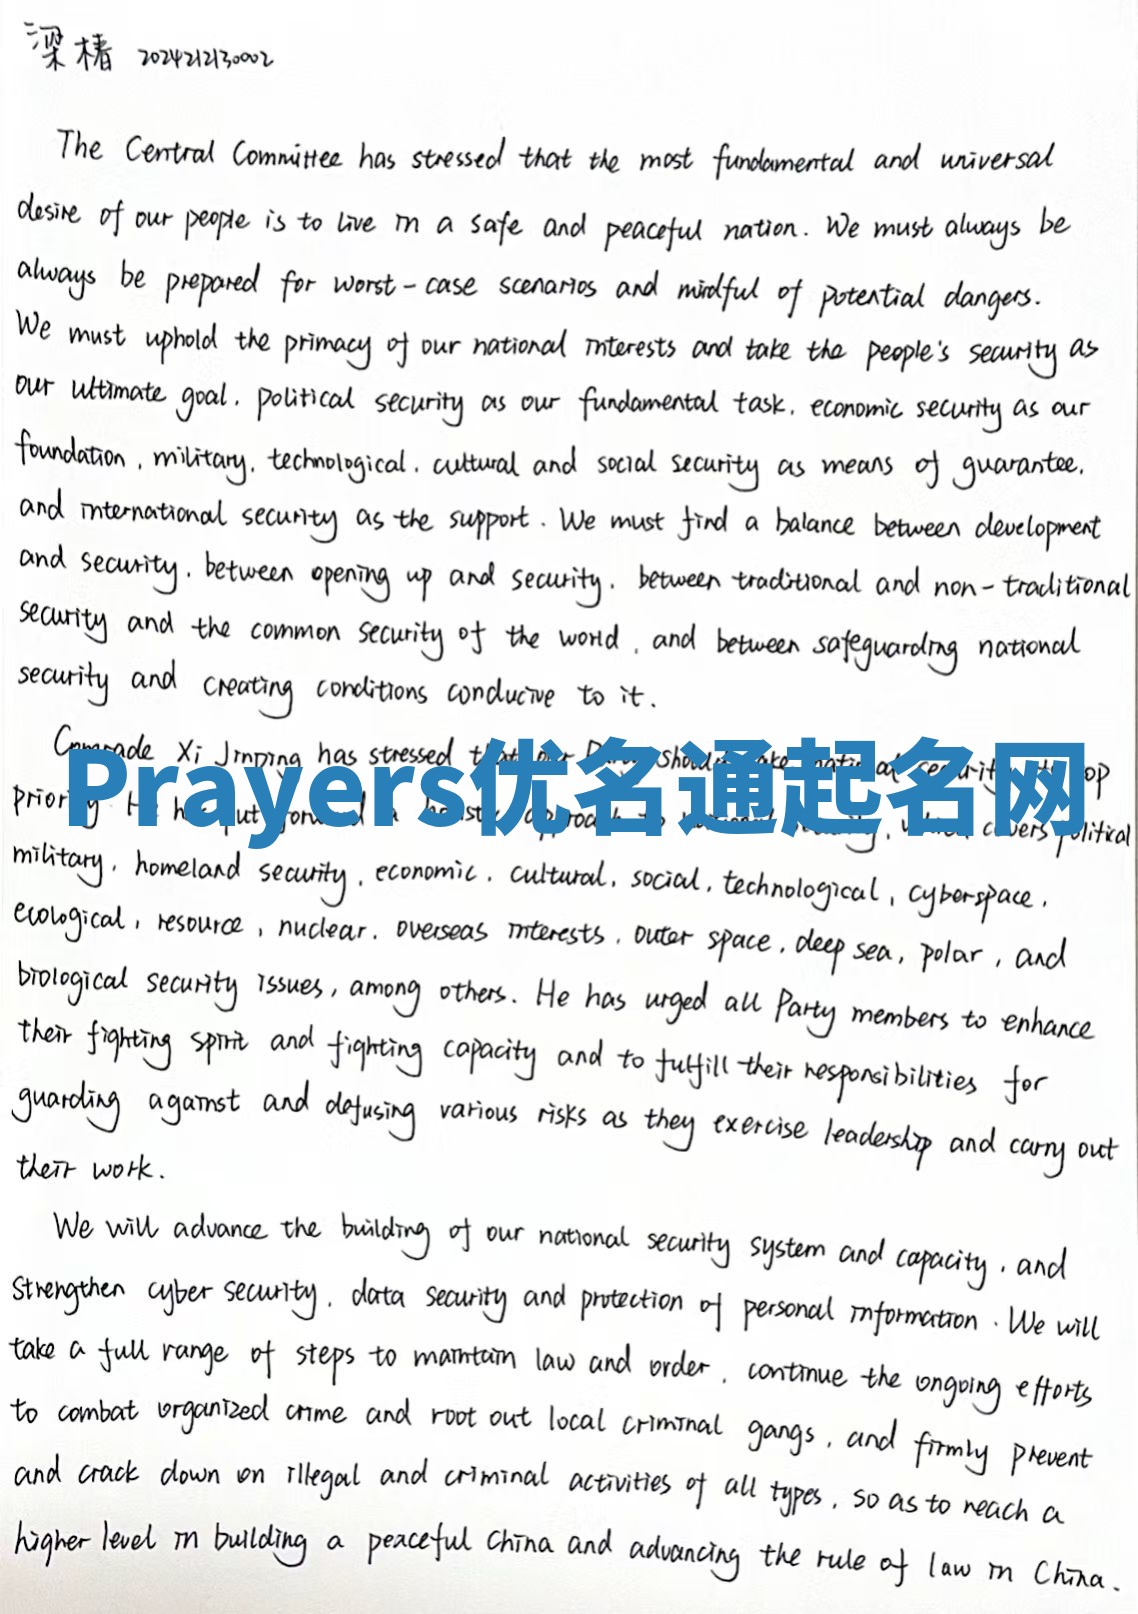 梁椿 2024212130002
The Central Committee has stressed that the most fundamental and universal
desire of our people is to live in a safe and peaceful nation. We must always be
always be prepared for worst-case scenarios and mindful of potential dangers.
We must uphold the primacy of our national interests and take the people's security as
our ultimate goal, political security as our fundamental task, economic security as our
foundation, military, technological, cultural and social security as means of guarantee,
and international security as the support. We must find a balance between development
and security, between opening up and security, between traditional and non-traditional
security and the common security of the world, and between safeguarding national
security and creating conditions conducive to it.
Comrade Xi Jinping has stressed that our Party should take national security its top
Prayers优名通起名网
priority. He has put forward a holistic approach to national security, which covers political
military, homeland security, economic, cultural, social, technological, cyberspace,
ecological, resource, nuclear, overseas interests, outer space, deep sea, polar, and
biological security issues, among others. He has urged all Party members to enhance
their fighting spirit and fighting capacity and to fulfill their responsibilities for
guarding against and defusing various risks as they exercise leadership and carry out
their work.
We will advance the building of our national security system and capacity, and
strengthen cyber security, data security and protection of personal information. We will
take a full range of steps to maintain law and order, continue the ongoing efforts
to combat organized crime and root out local criminal gangs, and firmly prevent
and crack down on illegal and criminal activities of all types, so as to reach a
higher level in building a peaceful China and advancing the rule of law in China.